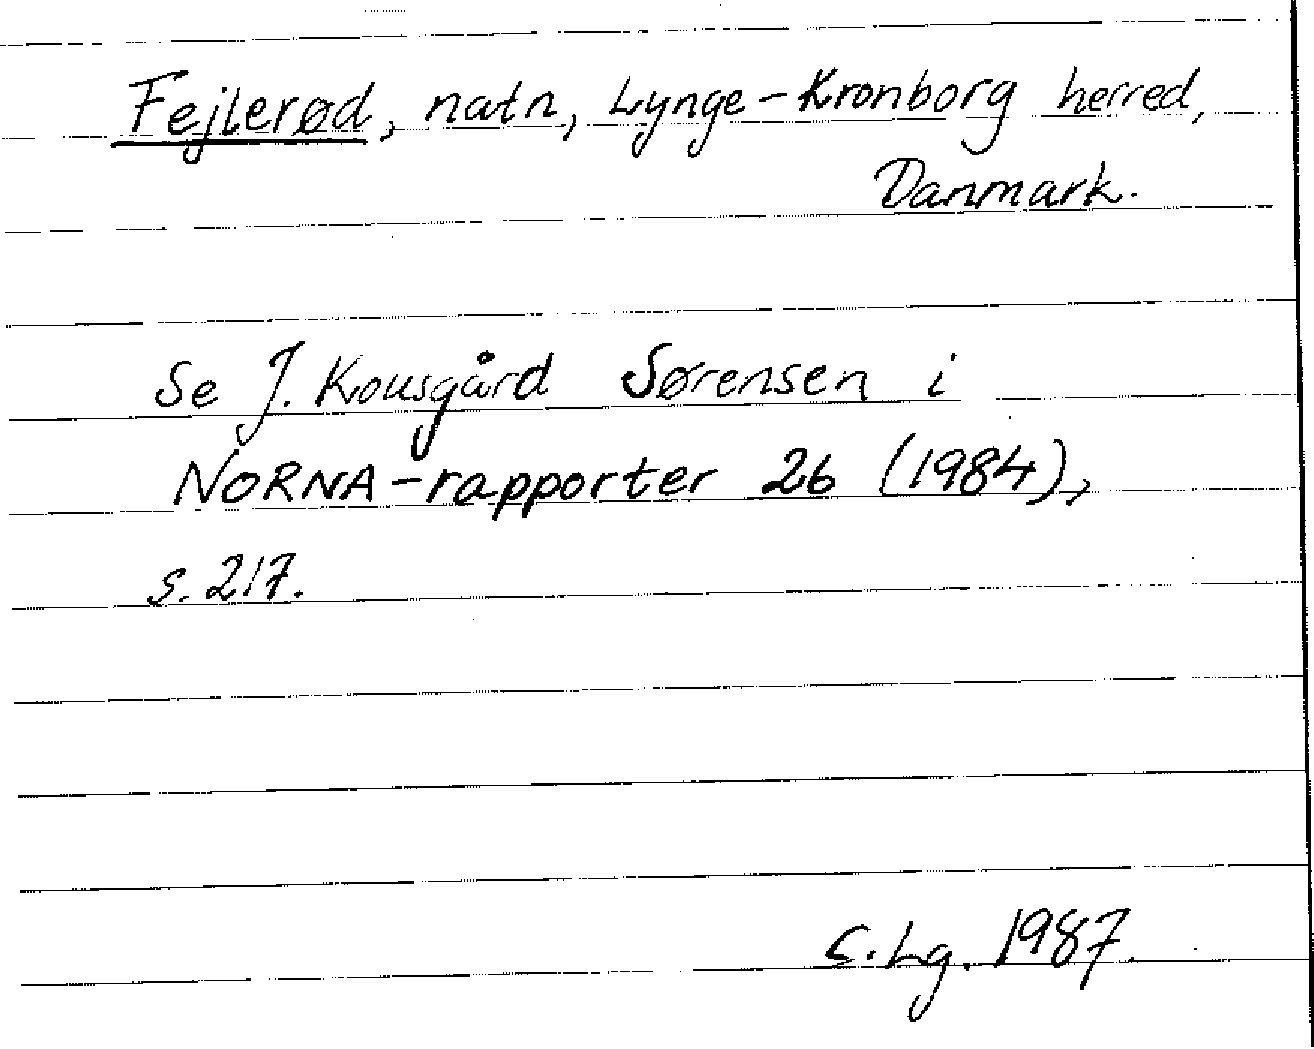 Fejlerød, natn, Lynge-Kronborg herred,
Danmark.
Se J. Kousgård Sørensen i
NORNA-rapporter 26 (1984),
s. 217.
S. Lg. 1987.